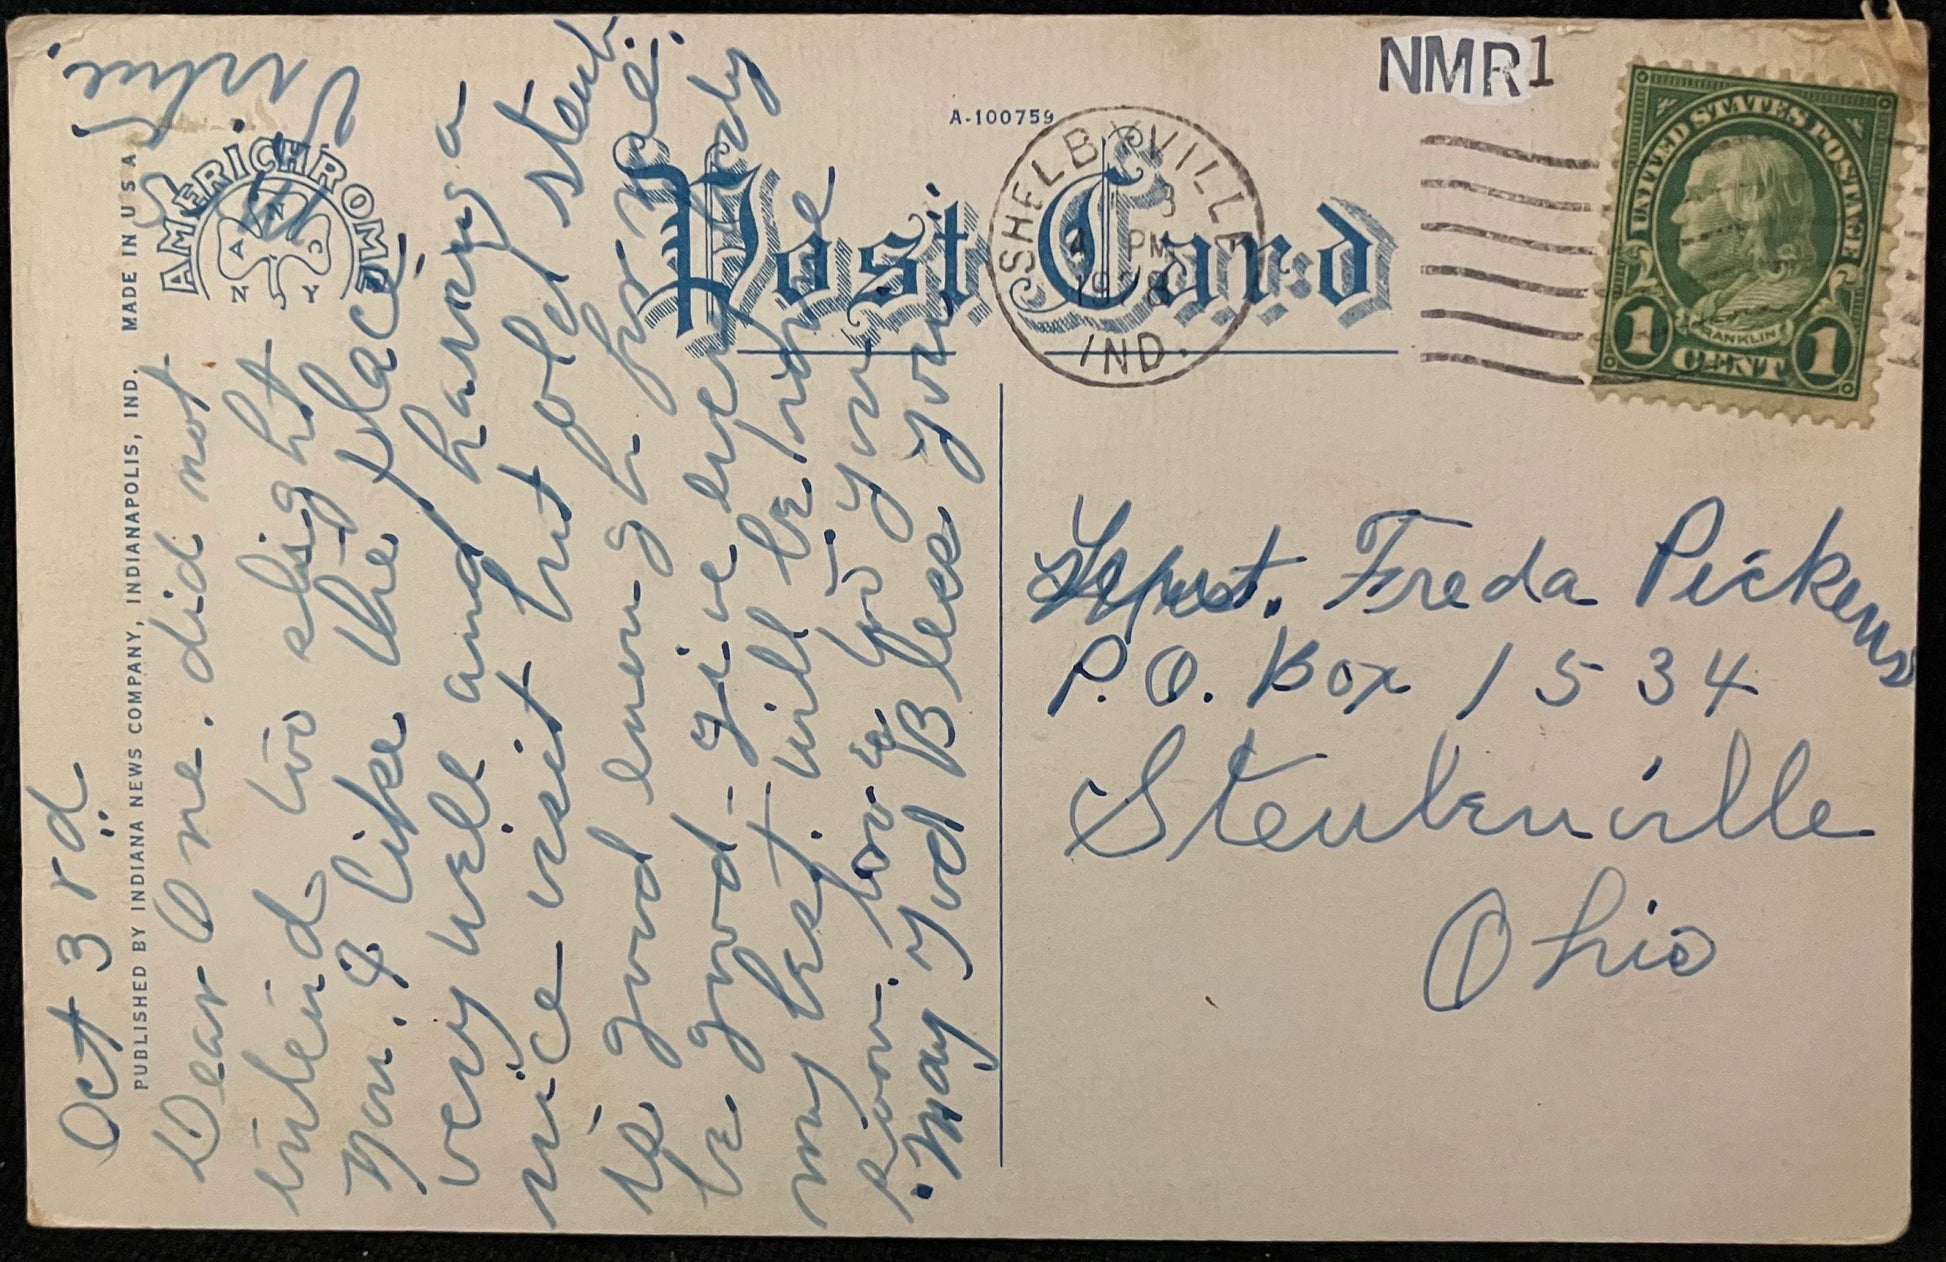 NMR1
A-100759
SHELBYVILLE
3
4 PM
IND.
UNITED STATES POSTAGE
FRANKLIN
1 CENT 1
Post Card
AMERICHROME
A N C O
N Y
PUBLISHED BY INDIANA NEWS COMPANY, INDIANAPOLIS, IND. MADE IN U S A
Oct 3rd
Dear One. did not
intend to slight
You. I like the place
very well and having a
nice visit but old
be good enough for me.
be good - give every body
my best. will be fine
soon. love to you
May God Bless you.
Freda Pickens
P.O. Box 1534
Steubenville
Ohio